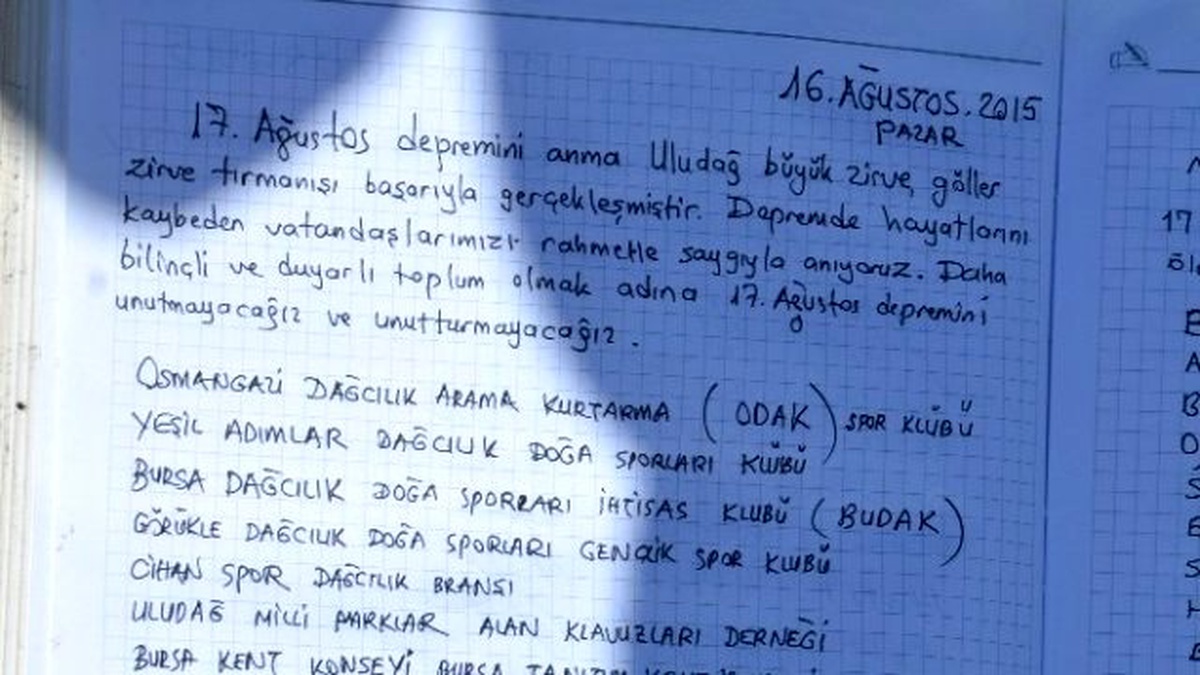 16. AĞUSTOS. 2015
PAZAR
17. Ağustos depremini anma Uludağ büyük zirve, göller
zirve tırmanışı başarıyla gerçekleşmiştir. Depremde hayatlarını
kaybeden vatandaşlarımızı rahmetle saygıyla anıyoruz. Daha
bilinçli ve duyarlı toplum olmak adına 17. Ağustos depremini
unutmayacağız ve unutturmayacağız.
OSMANGAZİ DAĞCILIK ARAMA KURTARMA (ODAK) SPOR KLÜBÜ
YEŞİL ADIMLAR DAĞCILIK DOĞA SPORLARI KLÜBÜ
BURSA DAĞCILIK DOĞA SPORLARI İHTİSAS KLUBÜ (BUDAK)
GÖRÜKLE DAĞCILIK DOĞA SPORLARI GENÇLİK SPOR KLUBÜ
CİHAN SPOR DAĞCILIK BRANŞI
ULUDAĞ MİLLİ PARKLAR ALAN KLAVUZLARI DERNEĞİ
BURSA KENT KONSEYİ BURSA TANITIM
17